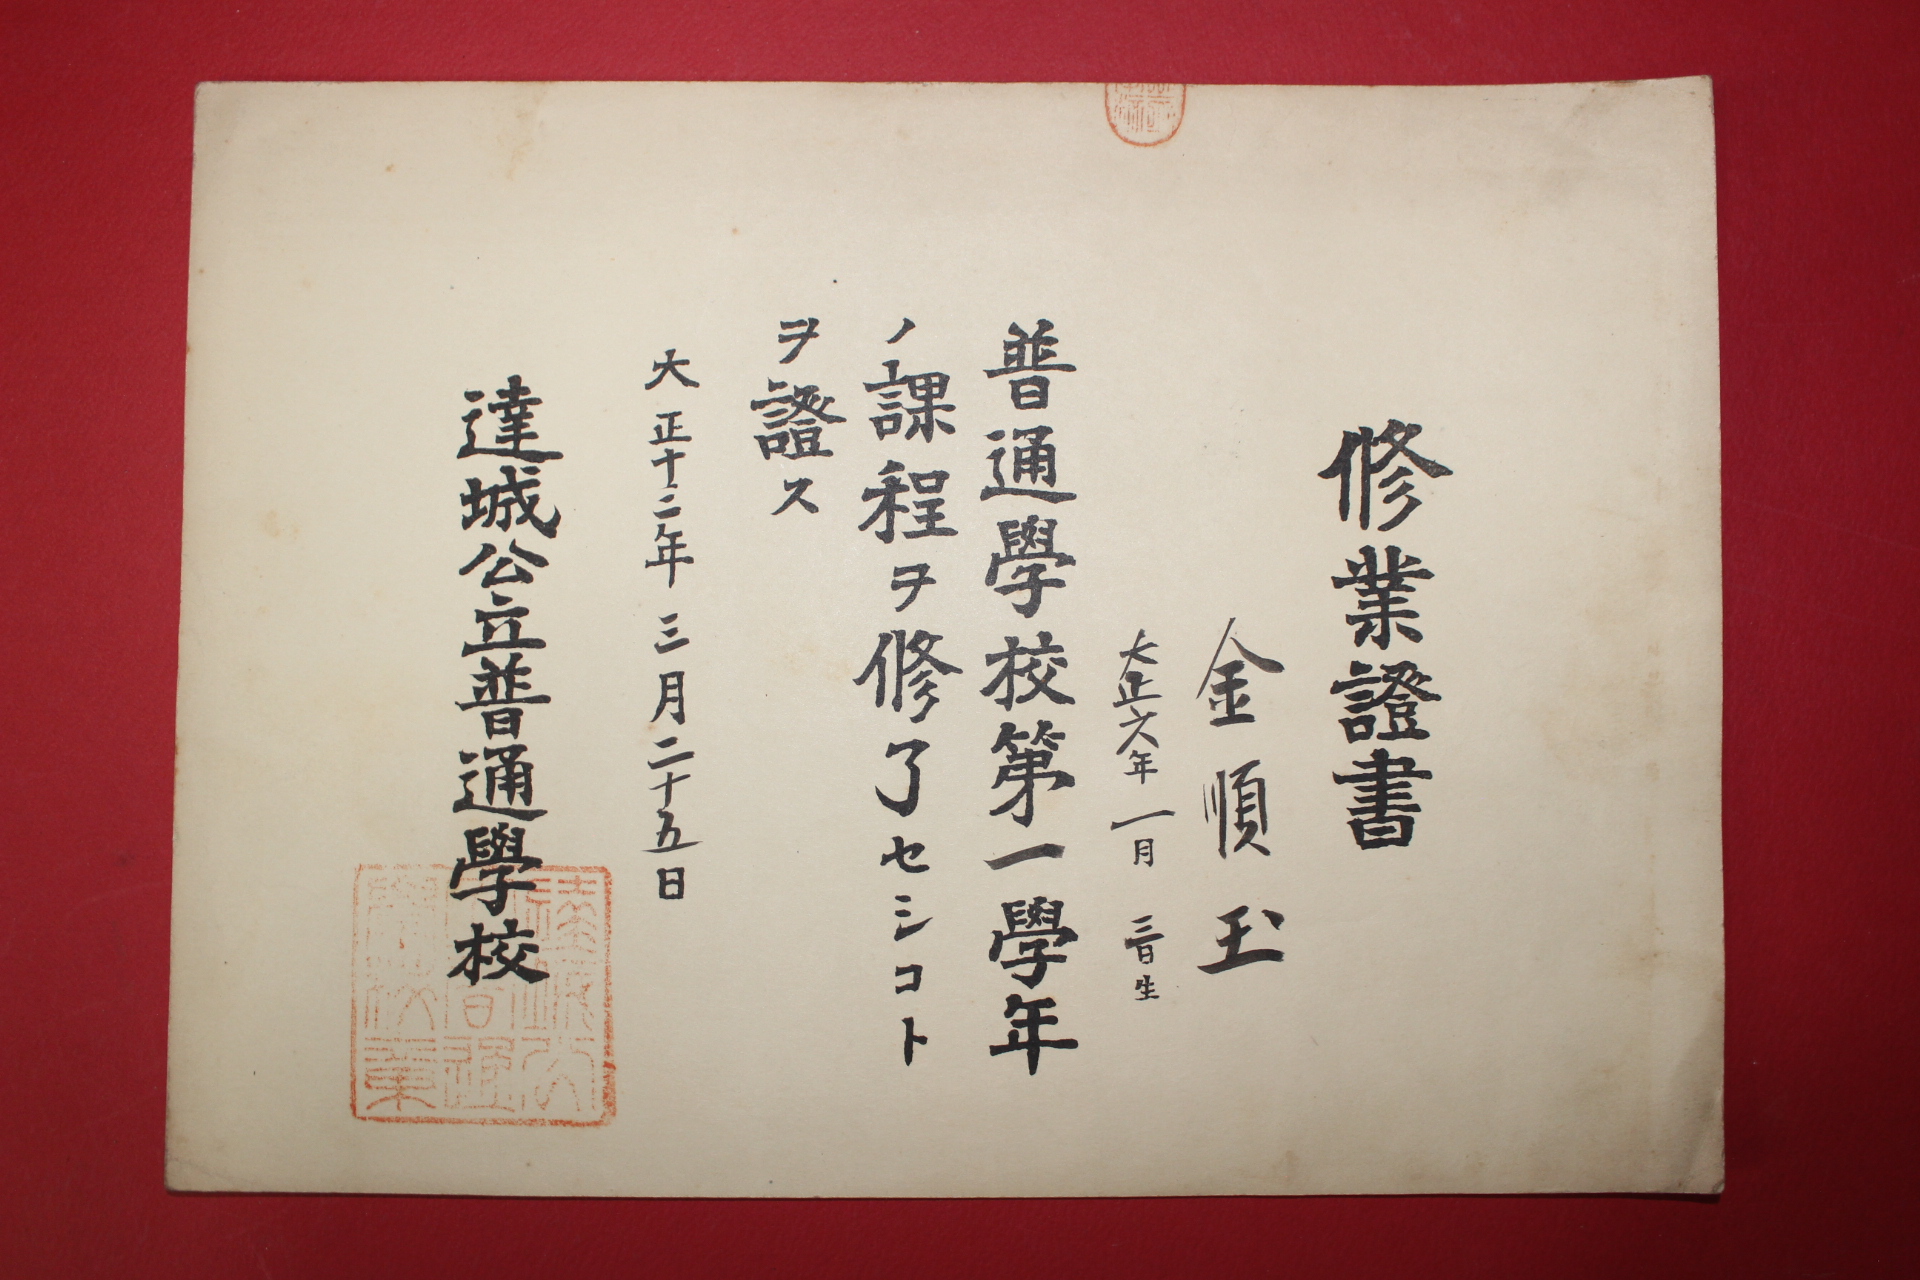 修業證書
金順玉
大正六年一月二日生
普通學校第一學年
ノ課程ヲ修了セシコト
ヲ證ス
大正十二年三月二十五日
達城公立普通學校